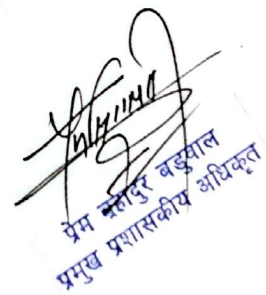 प्रेम बहादुर बडुवाल
प्रमुख प्रशासकीय अधिकृत